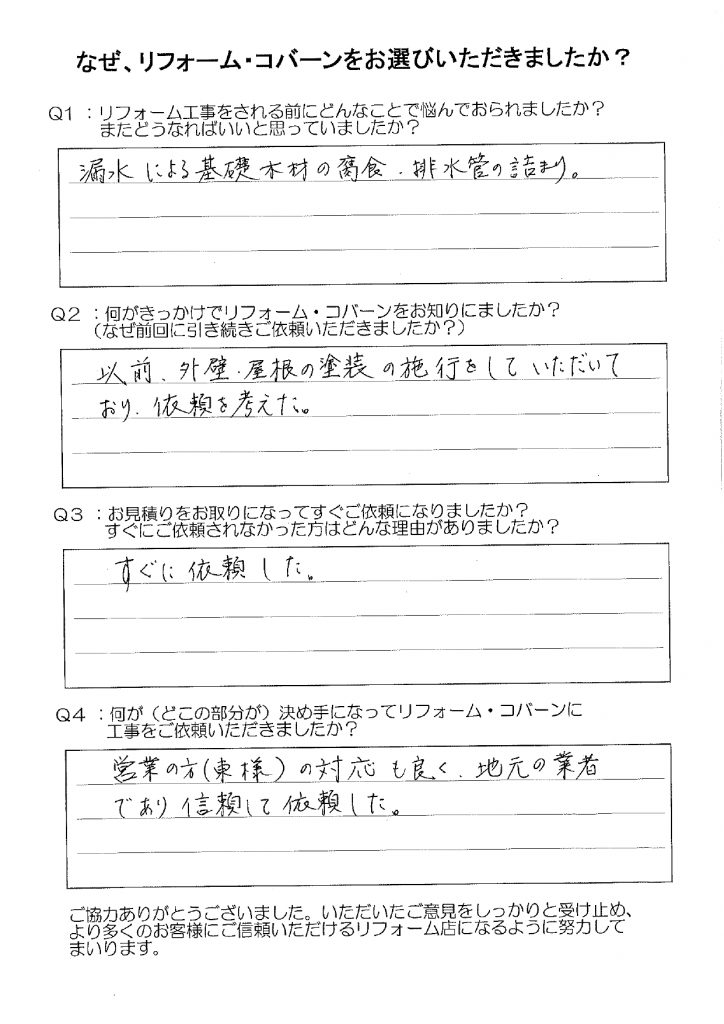 なぜ、リフォーム・コバーンをお選びいただきましたか？
Q1：リフォーム工事をされる前にどんなことで悩んでおられましたか？
またどうなればいいと思っていましたか？
漏水による基礎木材の腐食、排水管の詰まり。
Q2：何がきっかけでリフォーム・コバーンをお知りにましたか？
（なぜ前回に引き続きご依頼いただきましたか？）
以前、外壁、屋根の塗装の施行をしていただいて
おり、依頼を考えた。
Q3：お見積りをお取りになってすぐご依頼になりましたか？
すぐにご依頼されなかった方はどんな理由がありましたか？
すぐに依頼した。
Q4：何が（どこの部分が）決め手になってリフォーム・コバーンに
工事をご依頼いただきましたか？
営業の方(東様）の対応も良く、地元の業者
であり信頼して依頼した。
ご協力ありがとうございました。いただいたご意見をしっかりと受け止め、
より多くのお客様にご信頼いただけるリフォーム店になるように努力して
まいります。